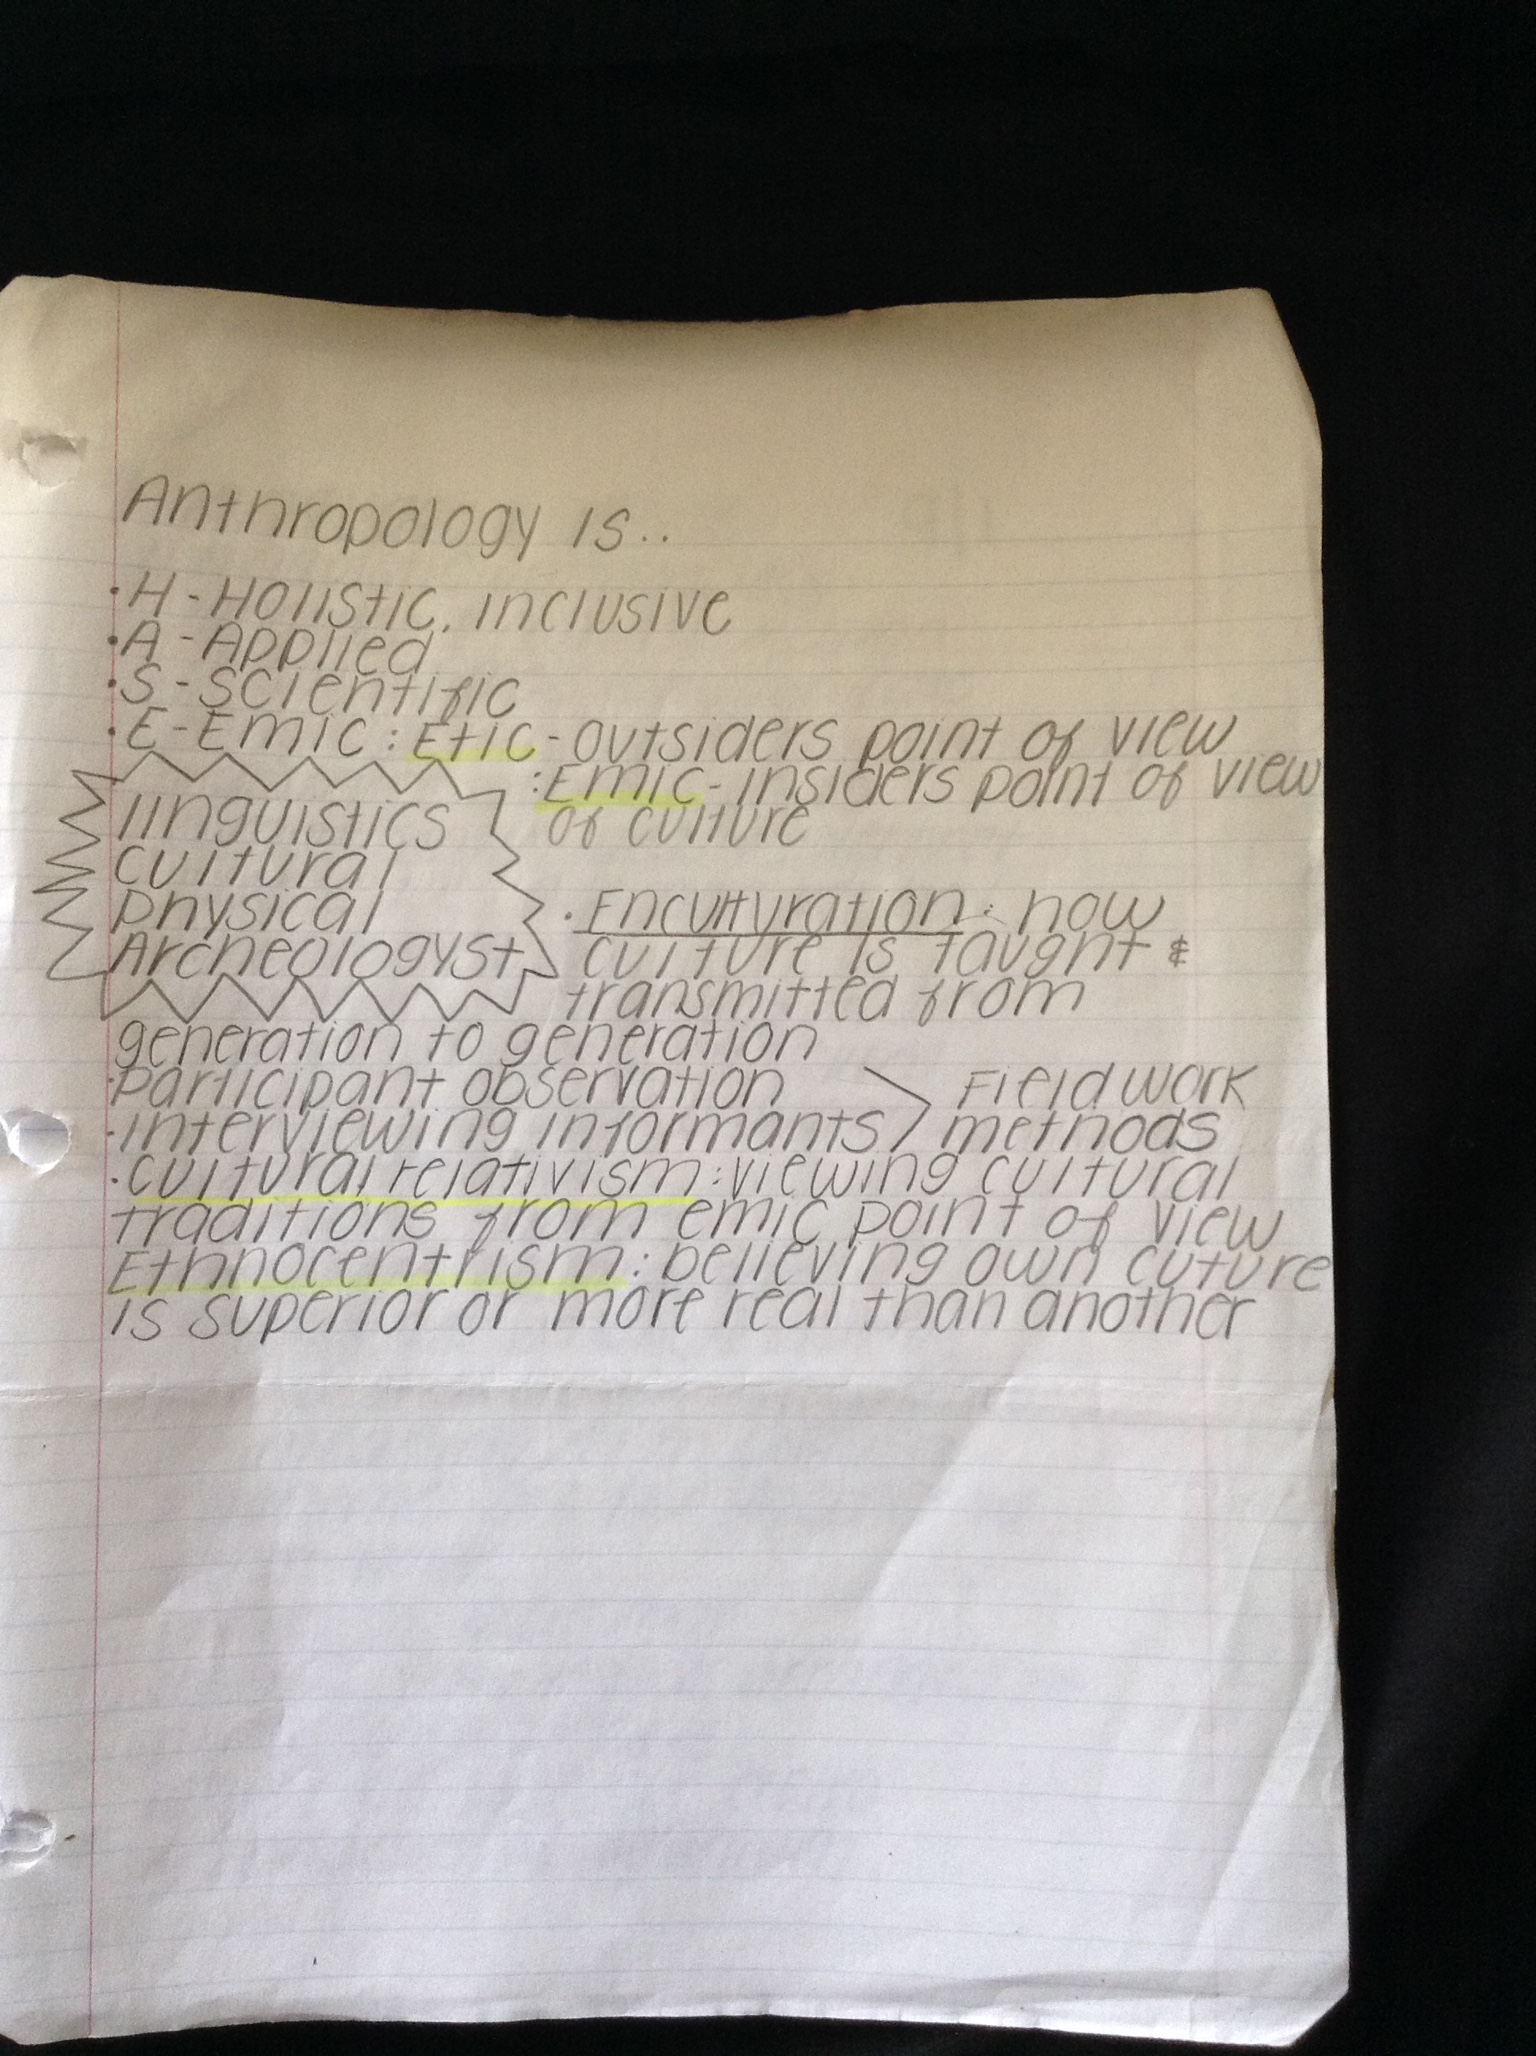 Anthropology is..
• H - Holistic, inclusive
• A - Applied
• S - Scientific
• E - Emic : Etic - outsiders point of view
: Emic - insiders point of view
of culture
linguistics
cultural
physical
Archeologyst
• Enculturation : how
culture is taught &
transmitted from
generation to generation
· participant observation
· interviewing informants
Field work
methods
· cultural relativism : viewing cultural
traditions from emic point of view
Ethnocentrism : believing own cuture
is superior or more real than another